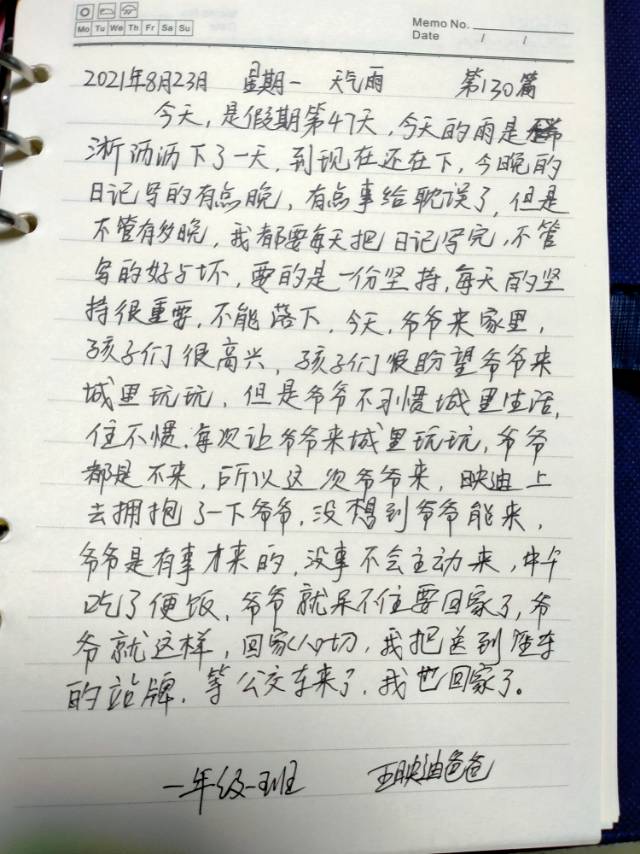 Memo No.
Mo Tu We Th Fr Sa Su
Date / /
2021年8月23日 星期一 天气雨 第130篇
今天,是假期第47天,今天的雨是
淅沥沥下了一天,到现在还在下,今晚的
日记写的有点晚,有点事给耽误了,但是
不管有多晚,我都要每天把日记写完,不管
写的好与坏,要的是一份坚持,每天的坚
持很重要,不能落下,今天,爷爷来家里,
孩子们很高兴,孩子们很盼望爷爷来
城里玩玩,但是爷爷不习惯城里生活,
住不惯.每次让爷爷来城里玩玩,爷爷
都是不来,所以这次爷爷来,映迪上
去拥抱了一下爷爷,没想到爷爷能来,
爷爷是有事才来的,没事不会主动来,中午
吃了便饭,爷爷就呆不住要回家了,爷
爷就这样,回家心切,我把送到坐车
的站牌,等公交车来了,我也回家了。
一年级一班 王映迪爸爸